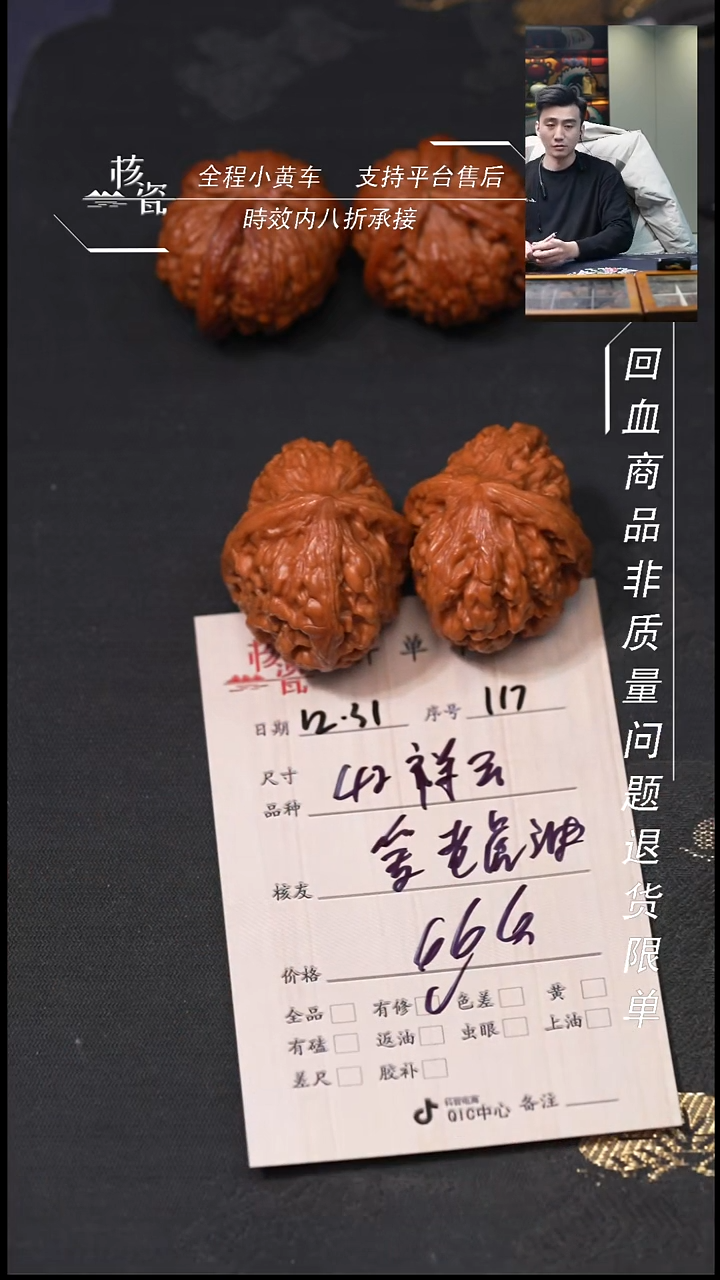 核瓷
全程小黄车 支持平台售后
時效内八折承接
回血商品非质量问题退货限单
核瓷 单
日期 12.31 序号 117
尺寸
品种 42祥云
核友 老虎油
价格 666
全品 有修 色差 黄
有磕 返油 虫眼 上油
差尺 胶补
抖音电商
QIC中心 备注